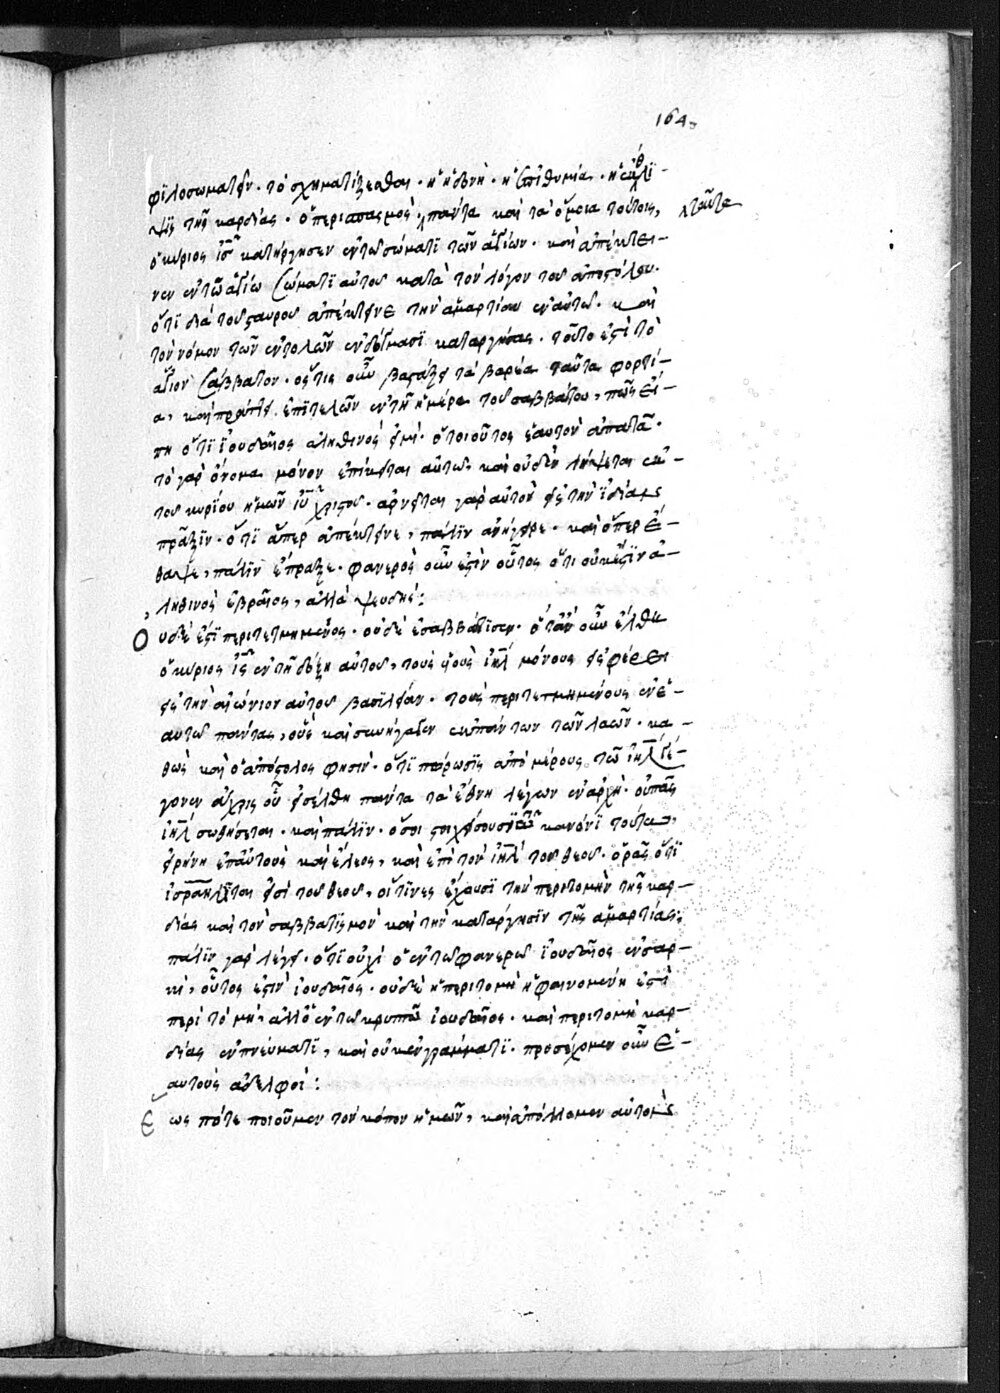 164
φϊλοσωματεῖν · τὸ σχηματίζεσθαι · ἡ ἡδονὴ · ἡ ἐπιθυμία ·
ψις τῆς καρδίας · ὁ περισπασμὸς · πάντα καὶ τὰ ὅμοια τούτοις, ταῦτα
ὁ κύριος ἰς κατήργησεν ἐν τῶ σώματϊ τῶν ἁγίων · καὶ ἀπέκτει-
νεν ἐν τῶ ἁγίω σώματϊ αὐτοῦ κατὰ τὸν λόγον τοῦ ἀποστόλου ·
ὅτϊ διὰ τοῦ σταυροῦ ἀπέκτεινε τὴν ἁμαρτίαν ἐν αὐτῶ · καὶ
τὸν νόμον τῶν ἐντολῶν ἐν δόγμασϊ καταργήσας · τοῦτο ἐστὶ τὸ
ἅγιον σάββατον · ὅστις οὖν βαστάζει τὰ βαρέα ταῦτα φορτί-
α, καὶ πράττει ἐπϊτελῶν ἐν τῆ ἡμέρα τοῦ σαββάτου, πῶς εἴ-
πη ὅτϊ ἰουδαῖος ἀληθινός εἰμί · ὁ τοιοῦτος ἑαυτὸν ἀπατᾶ ·
τὸ γὰρ ὄνομα μόνον ἐπίκειται αὐτῶ, καὶ οὐδὲν λήψεται ἐκ
τοῦ κυρίου ἡμῶν ἰυ χριστοῦ · ἀρνεῖται γὰρ αὐτὸν εἰς τὴν ἰδίαν
πρᾶξϊν · ὅτϊ ἅπερ ἀπέκτεινε, πάλϊν ἀνήγειρε · καὶ ὅπερ ἔ-
θαψε, πάλϊν ἔπραξε · φανερὸς οὖν ἐστὶν οὗτος ὅτι οὐκ ἔστϊν ἀ-
ληθινὸς ἑβραῖος, ἀλλὰ ψευδής :
Ουδὲ ἐστϊ περιτετμημένος · οὐδὲ ἐσαββάτισεν · ὅταν οὖν ἔλθη
ὁ κύριος ἰς ἐν τῆ δόξη αὐτοῦ, τοὺς υἱοὺς ἰηλ μόνους εἰσφέρει
εἰς τὴν αἰώνιον αὐτοῦ βασιλείαν · τοὺς περιτετμημένους ἐν ἑ-
αυτῶ πάντας, οὓς καὶ συνήγαγεν ἐκ πάντων τῶν λαῶν · κα-
θὼς καὶ ὁ ἀπόστολος φησὶν · ὅτϊ πώρωσϊς ἀπὸ μέρους τῶ ἰηλ γέ-
γονεν ἄχρις οὗ εἰσέλθη πάντα τὰ ἔθνη λέγων ἐν ἀρχῆ · οὐ πᾶς
ἰηλ σωθήσεται · καὶ πάλϊν · ὅσοι στοιχήσουσϊ τῶ κανόνϊ τούτω,
εἰρήνη ἐπ αὐτοὺς καὶ ἔλεος, καὶ ἐπὶ τὸν ἰηλ τοῦ θεοῦ · ὁρᾶς ὅτϊ
ἰσραηλῖται εἰσὶ τοῦ θεοῦ, οἵτϊνες ἔχουσϊ τὴν περιτομὴν τῆς καρ-
δίας καὶ τὸν σαββατϊσμὸν καὶ τὴν κατάργησϊν τῆς ἁμαρτίας ·
πάλϊν γὰρ λέγει · ὅτϊ οὐχὶ ὁ ἐν τῶ φανερῶ ἰουδαῖος ἐν σαρ-
κὶ, οὗτος ἐστὶν ἰουδαῖος · οὐδὲ ἡ περιτομὴ ἡ φαινομένη ἐστὶ
περιτομὴ, ἀλλ ὁ ἐν τῶ κρυπτῶ ἰουδαῖος · καὶ περιτομὴ καρ-
δίας ἐν πνεύματϊ, καὶ οὐκ ἐν γράμματϊ · προσέχωμεν οὖν ἑ-
αυτοὺς ἀδελφοί :
Εως πότε ποιοῦμεν τὸν κόπον ἡμῶν, καὶ ἀπόλλομεν αὐτὸν